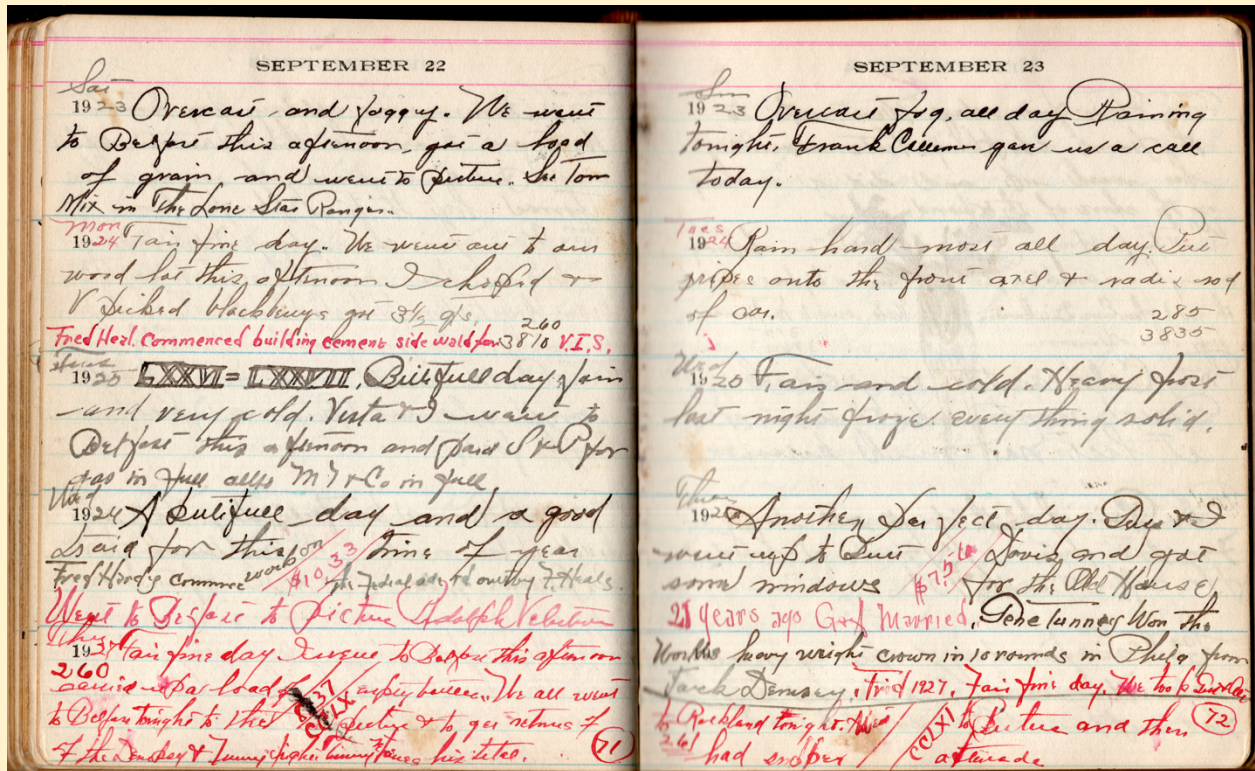 SEPTEMBER 22
Sat
1923 Overcast and foggy. We went
to Belfast this afternoon, got a load
of grain and went to picture. See Tom
Mix in The Lone Star Ranger.
Mon
1924 Fair fine day. We went out to our
wood lot this afternoon I chopped &
V picked blackberrys got 3½ qts.
260
Fred Heal. Commenced building cement side wald for 3810 V.I.S.
1925 LXXVI = LXXVII. Butifull day fair
and very cold. Vesta & I went to
Belfast this afternoon and paid S & P for
gas in full allso M & Co in full
Wed
1926 A butifull day and a good
for this time of year
$10.33
Fred Hardy commence work on the by F. Heals.
Went to Belfast to Picture
Thur
1927 Fair fine day I went to Belfast this afternoon
260
carried up a load of empty We all went
CCLX
to Belfast tonight to the picture & to get returns of
of the Dempsey & Tunny fight Tunny his titel.
71
SEPTEMBER 23
Sun
1923 Overcast fog, all day Raining
tonight. Frank gave us a call
today.
Tues
1924 Rain hard most all day. Put
onto the front axel & radis rod
of car.
285
3835
Wed
1925 Fair and cold. Heavy frost
last night froze every thing solid.
Thur
1926 Another perfect day. & I
went up to Davis and got
some windows for the Old House
21 years ago G & I Married. Gene Tunney Won the
Worlds heavy weight crown in 10 rounds in Phila from
Jack Demsey. Frid 1927. Fair fine day. We took
to Rockland tonight. to picture and then
261
CCLXI
72
had supper afterwads